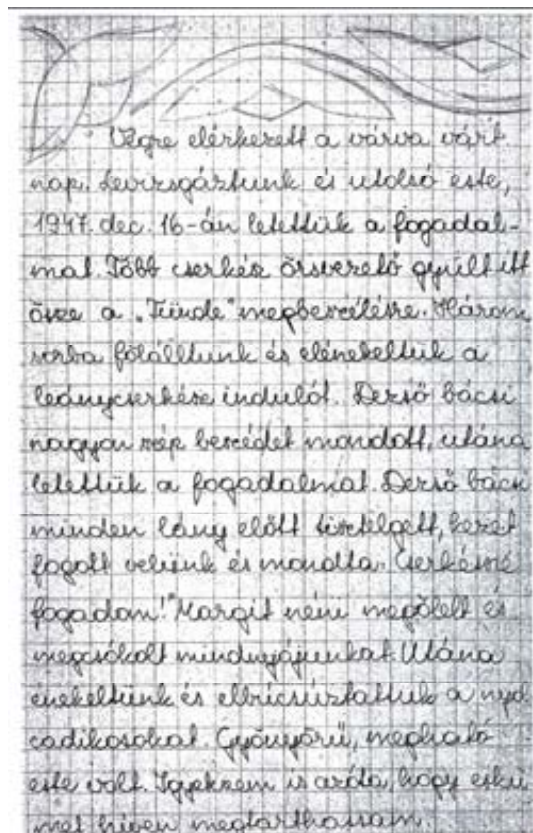 Végre elérkezett a várva várt
nap. Levizsgáztunk és utolsó este,
1947. dec. 16-án letettük a fogadal-
mat. Több cserkész őrsvezető gyűlt itt
össze a „Tünde" megbeszélésre. Három
sorba fölálltunk és elénekeltük a
leánycserkész indulót. Dezső bácsi
nagyon szép beszédet mondott, utána
letettük a fogadalmat. Dezső bácsi
minden lány előtt tisztelgett, kezet
fogott velünk és mondta: Cserkésszé
fogadom!" Margit néni megölelt és
megcsókolt mindnyájunkat. Utána
énekeltünk és elbúcsúztattuk a nyol
cadikosokat. Gyönyörű, megható
este volt. Igyekszem is azóta, hogy eskü
met híven megtarthassam.